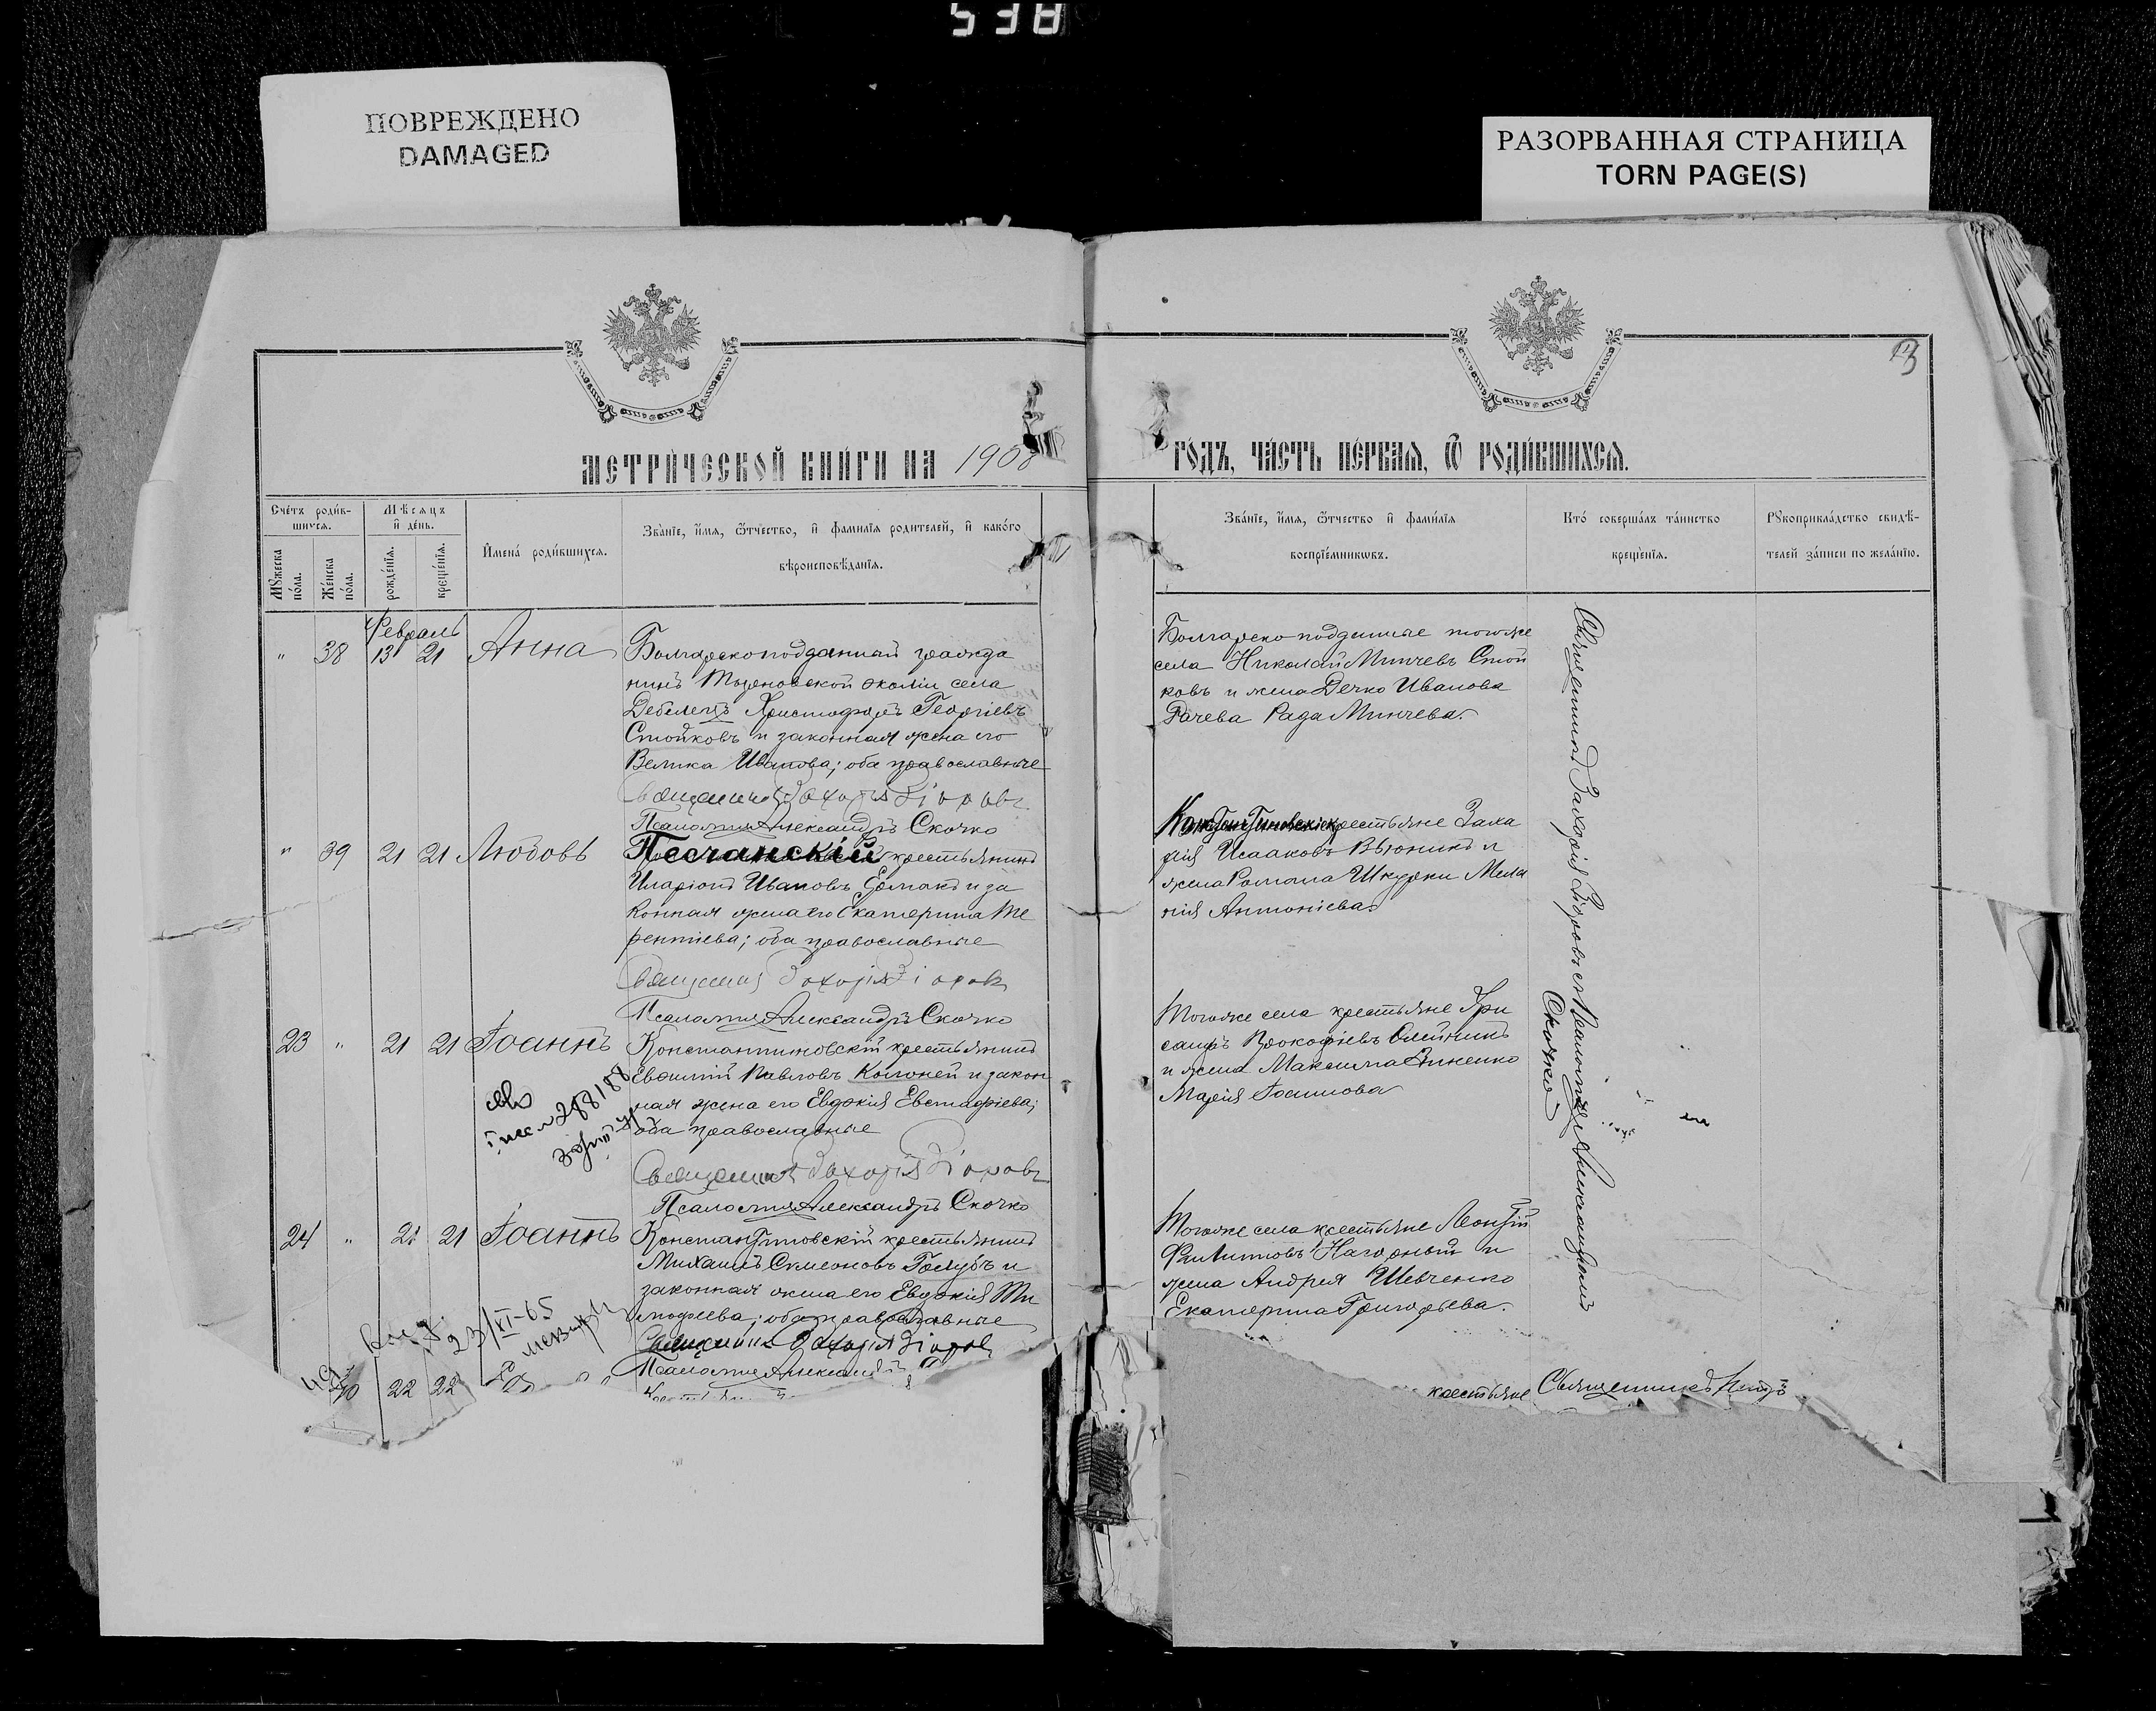 538
ПОВРЕЖДЕНО
DAMAGED
РАЗОРВАННАЯ СТРАНИЦА
TORN PAGE(S)
МЕТРИ́ЧЕСКОЙ КНИ́ГИ НА 1908
ГО́ДЪ, ЧА́СТЬ ПЕ́РВАЯ, Ѿ РОДИ́ВШИХСЯ.
Сче́тъ роди́в-
шихся.
Мѣсяцъ
и де́нь.
Мꙋ́жеска
по́ла.
Же́нска
по́ла.
рожде́нїя.
креще́нїя.
Имена́ роди́вшихся.
Зва́нїе, и́мя, ѻ́тчество, и фами́лїя родителей, и како́го
вѣроисповѣ́данїя.
Зва́нїе, и́мя, ѻ́тчество и фами́лїя
воспрїе́мникѡвъ.
Кто́ соверша́лъ та́инство
креще́нїя.
Рꙋкоприкла́дство свидѣ́-
телей за́писи по жела́нїю.
Февраль
" 38 13 21 Анна
Болгарскоподданный гражда
нинъ Тырновской околіи села
Дебелецъ Христофоръ Георгіевъ
Стойковъ и законная жена его
Велика Иванова; оба православные
Священникъ Захарія
Псаломщикъ Александръ Скочко
Болгарско подданные тогоже
села Николай Минчевъ Стой
ковъ и жена Дечко Иванова
Рачева Рада Минчева.
" 39 21 21 Любовь
Песчанскій крестьянинъ
Иларіонъ Ивановъ Ермакъ и за
конная жена его Екатерина Те
рентіева; оба православные
Священникъ Захарія
Псаломщикъ Александръ Скочко
Константиновскіе крестьяне Заха
рія Исааковъ Вьюникъ и
жена Романа Шкурки Мела
нія Антоніева.
23 " 21 21 Іоаннъ
Константиновскій крестьянинъ
Евфимій Павловъ Коломей и закон
ная жена его Евдокія Евстафіева;
оба православные
Священникъ Захарія
Псаломщикъ Александръ Скочко
288188
Тогоже села крестьяне Хри
санфъ Прокофіевъ Олейникъ
и жена Максима Зинченко
Марія Іоаннова
24 " 21 21 Іоаннъ
Константиновскій крестьянинъ
Михаилъ Симеоновъ Голубъ и
законная жена его Евдокія Ти
мофеева; оба православные
Священникъ Захарія
Псаломщикъ Александръ
23/XI-65
Тогоже села крестьяне Леонтій
Филипповъ Нагорный и
жена Андрея Шевченко
Екатерина Григорьева.
Священникъ Захарія съ Псаломщикомъ Александромъ
Скочко
40 22 22
крестьяне
Священникъ Петръ